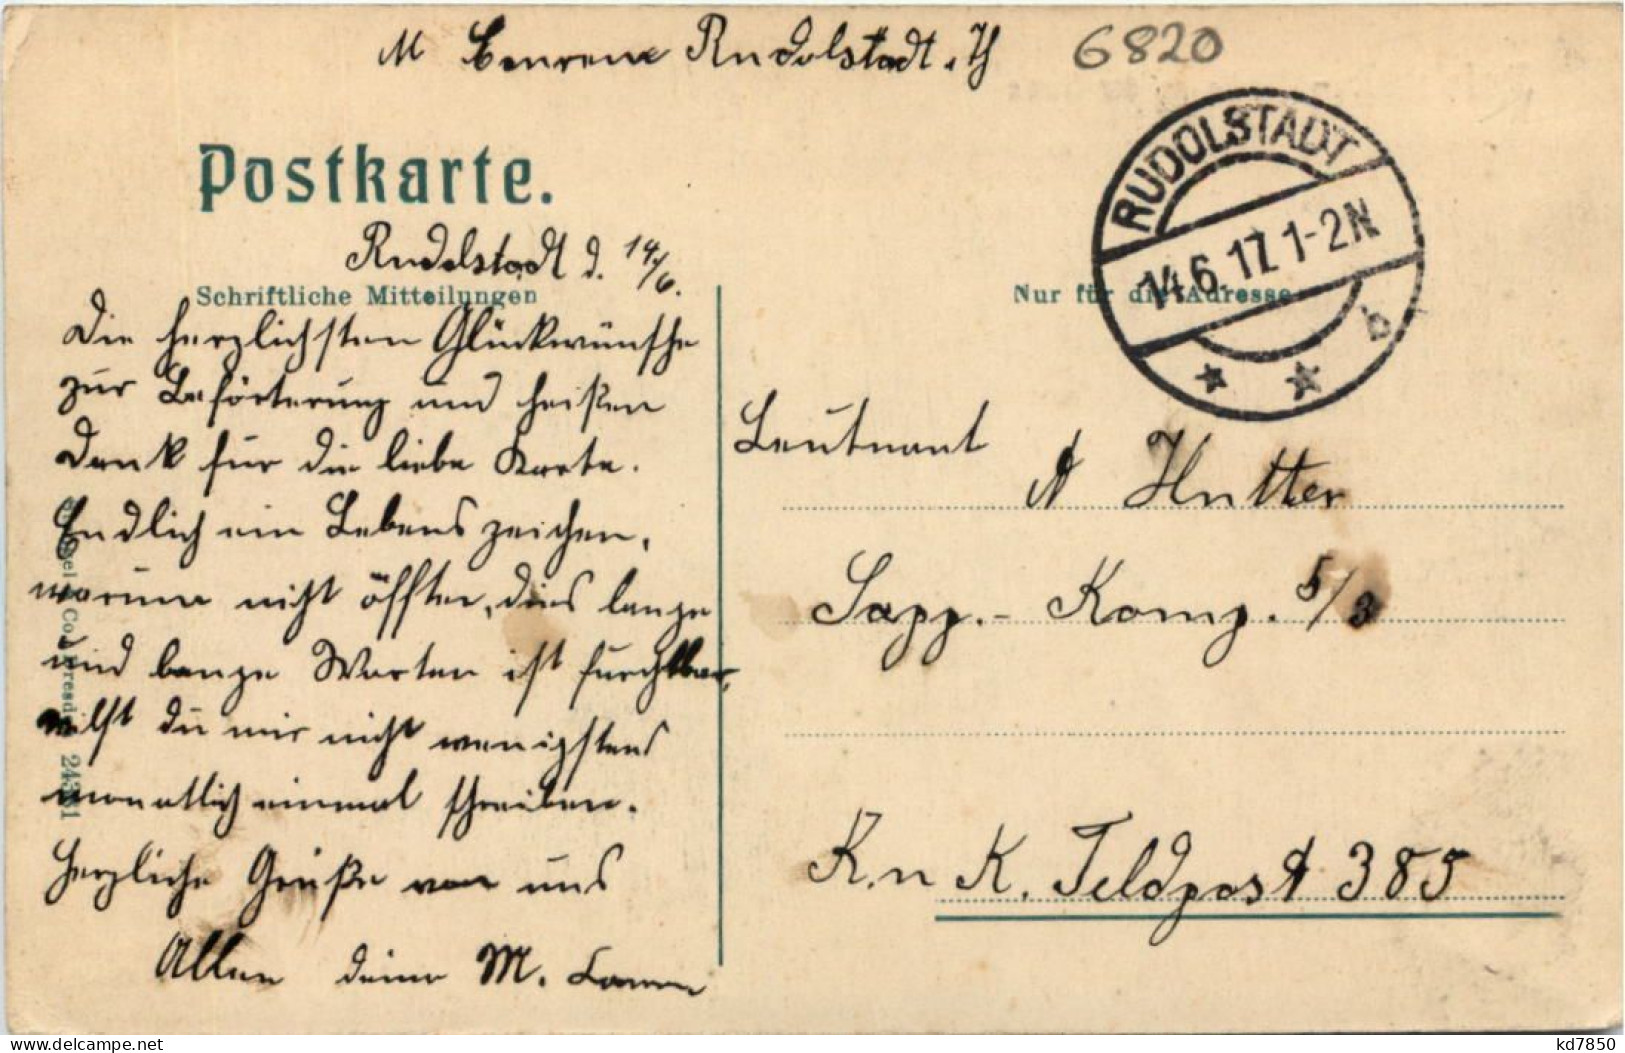 M Rudolstadt i. Th
6820
Postkarte.
RUDOLSTADT
14.6.17. 1-2N
b
Rudolstadt d. 14/6.
Schriftliche Mitteilungen
Nur für die Adresse
Die herzlichsten Glückwünsche
zur Beförterung und heißen
Dank für die liebe Karte.
Endlich ein Lebenszeichen,
warum nicht öffter, dies lange
und bange Warten ist furchtbar,
willst du mir nicht wenigstens
monatlich einmal schreiben.
Herzliche Grüße von uns
Allen deine M.
Leutnant
A Hutter
Sapp.- Komp. 5/3
K. u K. Feldpost 385
24351
kd7850